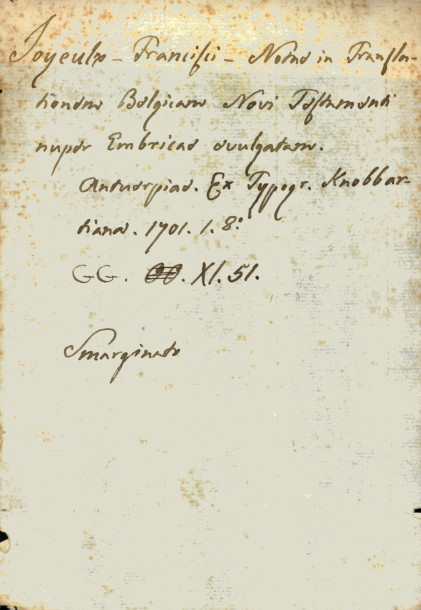 Joyeulx - Francisci - Notae in Transla-
tionem Belgicam Novi Testamenti
nuper Embricae evulgatam.
Antuerpiae. Ex Typogr. Knobbar-
tiana. 1701. 1. 8:
GG. XI. 51.
Smarginato